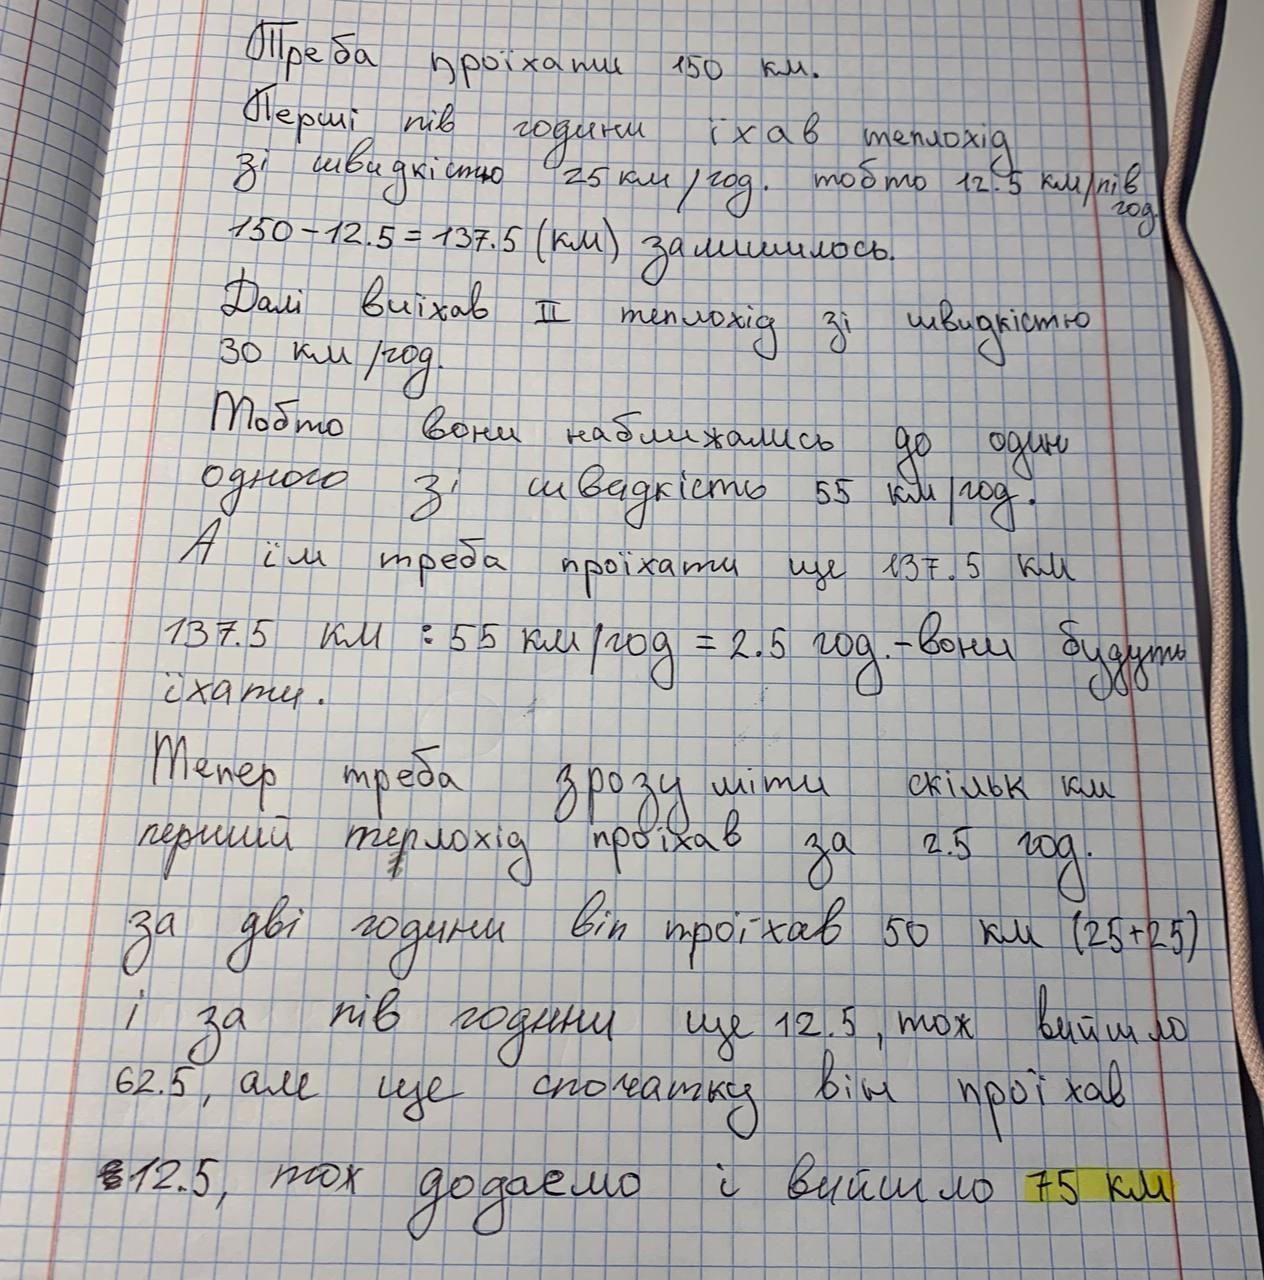 Треба проїхати 150 км.
Перші пів години їхав теплохід
зі швидкістю 25 км/год. тобто 12.5 км/пів
год.
150-12.5=137.5 (км) залишилось.
Далі виїхав II теплохід зі швидкістю
30 км/год.
Тобто вони наближались до один
одного зі швидкість 55 км/год.
А їм треба проїхати ще 137.5 км
137.5 км : 55 км/год = 2.5 год.-вони будуть
їхати.
Тепер треба зрозуміти скільк км
перший теплохід проїхав за 2.5 год.
за дві години він проїхав 50 км (25+25)
і за пів години ще 12.5, тож вийшло
62.5, але ще спочатку він проїхав
12.5, тож додаємо і вийшло 75 км